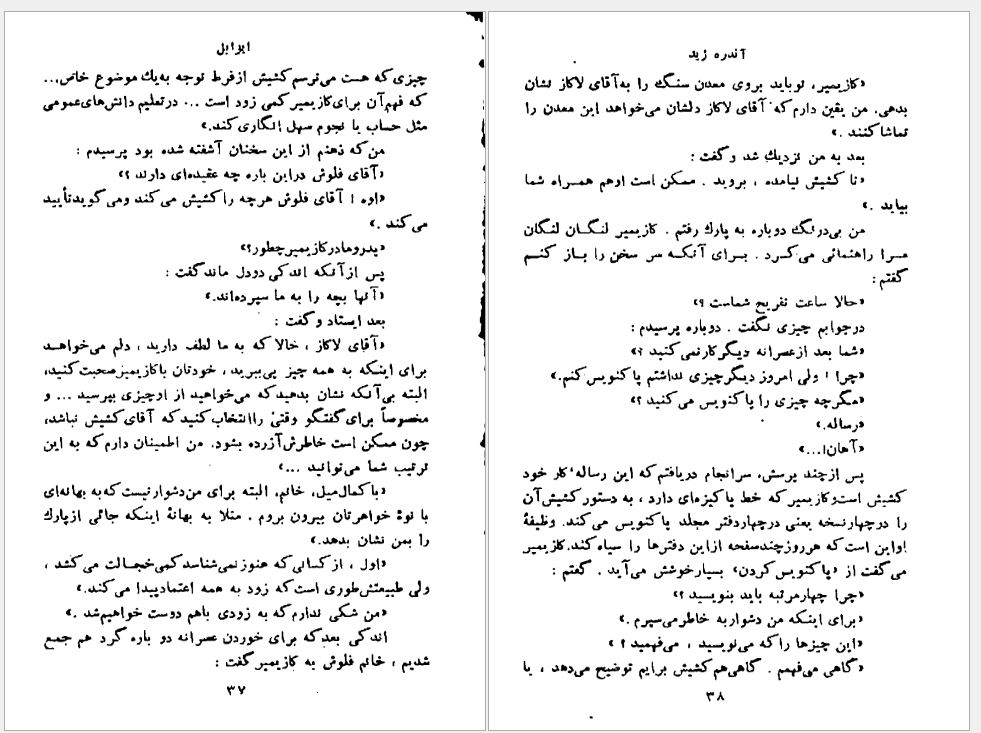 ایزابل
چیزی که هست می‌ترسم کشیش از فرط توجه به یك موضوع خاص...
که فهم آن برای کازیمیر کمی زود است ... در تعلیم دانش‌های عمومی
مثل حساب یا نجوم سهل انگاری کند.»
من که ذهنم از این سخنان آشفته شده بود پرسیدم :
«آقای فلوش در این باره چه عقیده‌ای دارند ؟»
«اوه ! آقای فلوش هرچه را کشیش می‌کند و می‌گوید تأیید
می‌کند .»
«پدر و مادر کازیمیر چطور؟»
پس از آنکه اندکی دودل ماند گفت :
«آنها بچه را به ما سپرده‌اند.»
بعد ایستاد و گفت :
«آقای لاکاز ، حالا که به ما لطف دارید ، دلم می‌خواهد
برای اینکه به همه چیز پی‌ببرید ، خودتان با کازیمیر صحبت کنید،
البته بی‌آنکه نشان بدهید که می‌خواهید از او چیزی بپرسید ... و
مخصوصاً برای گفتگو وقتی را انتخاب کنید که آقای کشیش نباشد،
چون ممکن است خاطرش آزرده بشود. من اطمینان دارم که به این
ترتیب شما می‌توانید ...»
«با کمال میل، خانم. البته برای من دشوار نیست که به بهانه‌ای
با نوهٔ خواهرتان بیرون بروم . مثلا به بهانهٔ اینکه جائی از پارك
را بمن نشان بدهد.»
«اول ، از کسانی که هنوز نمی‌شناسد کمی خجالت می‌کشد ،
ولی طبیعتش طوری است که زود به همه اعتماد پیدا می‌کند.»
«من شکی ندارم که به زودی باهم دوست خواهیم شد .»
اندکی بعد که برای خوردن عصرانه دو باره گرد هم جمع
شدیم ، خانم فلوش به کازیمیر گفت :
۳۷
آندره ژید
«کازیمیر، تو باید بروی معدن سنگ را به آقای لاکاز نشان
بدهی. من یقین دارم که آقای لاکاز دلشان می‌خواهد این معدن را
تماشا کنند .»
بعد به من نزدیك شد و گفت :
«تا کشیش نیامده ، بروید . ممکن است او هم همراه شما
بیاید .»
من بی‌درنگ دوباره به پارك رفتم . کازیمیر لنگان لنگان
مرا راهنمائی می‌کرد . برای آنکه سر سخن را باز کنم
گفتم :
«حالا ساعت تفریح شماست ؟»
در جوابم چیزی نگفت . دوباره پرسیدم :
«شما بعد از عصرانه دیگر کار نمی‌کنید ؟»
«چرا ! ولی امروز دیگر چیزی نداشتم پاکنویس کنم.»
«مگر چه چیزی را پاکنویس می‌کنید ؟»
«رساله.»
«آهان!...»
پس از چند پرسش، سرانجام دریافتم که این رساله کار خود
کشیش است و کازیمیر که خط پاکیزه‌ای دارد ، به دستور کشیش آن
را در چهار نسخه یعنی در چهار دفتر مجلد پاکنویس می‌کند. وظیفهٔ
او این است که هر روز چند صفحه از این دفترها را سیاه کند. کازیمیر
می‌گفت از «پاکنویس کردن» بسیار خوشش می‌آید . گفتم :
«چرا چهار مرتبه باید بنویسید ؟»
«برای اینکه من دشوار به خاطر می‌سپرم .»
«این چیزها را که می‌نویسید ، می‌فهمید ؟ »
«گاهی می‌فهمم . گاهی هم کشیش برایم توضیح می‌دهد ، یا
۳۸